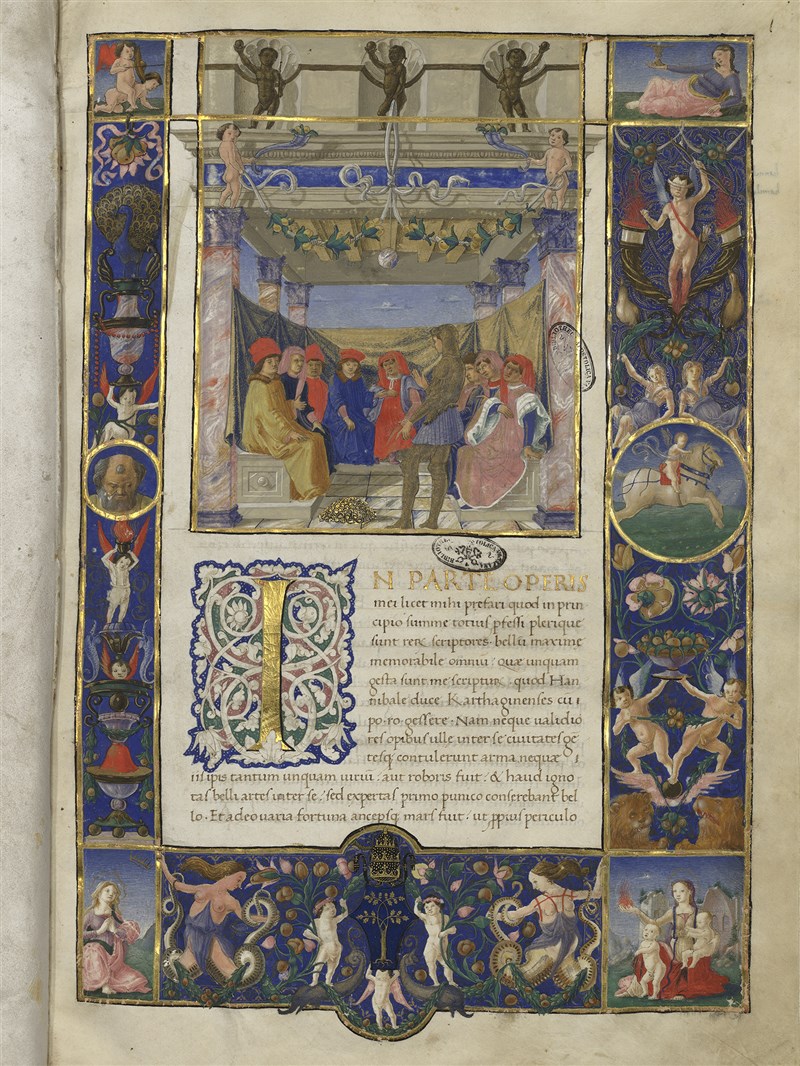 IN PARTE OPERIS
mei licet mihi prefari quod in prin
cipio summe totius ꝓfessi plerique
sunt reꝝ scriptores. bellū maxime
memorabile omniū: quæ unquam
gesta sunt me scripturū: quod Han
nibale duce Karthaginenses cū ī
po. ro gessere. Nam neque ualidio
res opibus ulle inter se ciuitates gē
tesq; contulerunt arma nequæ ī
iis ipīs tantum unquam uiriū aut roboris fuit. & haud igno
tas belli artes inter se: sed expertas primo punico conserebant bel
lo. Et adeo uaria fortuna ancepsq; mars fuit. ut ꝓpius periculo